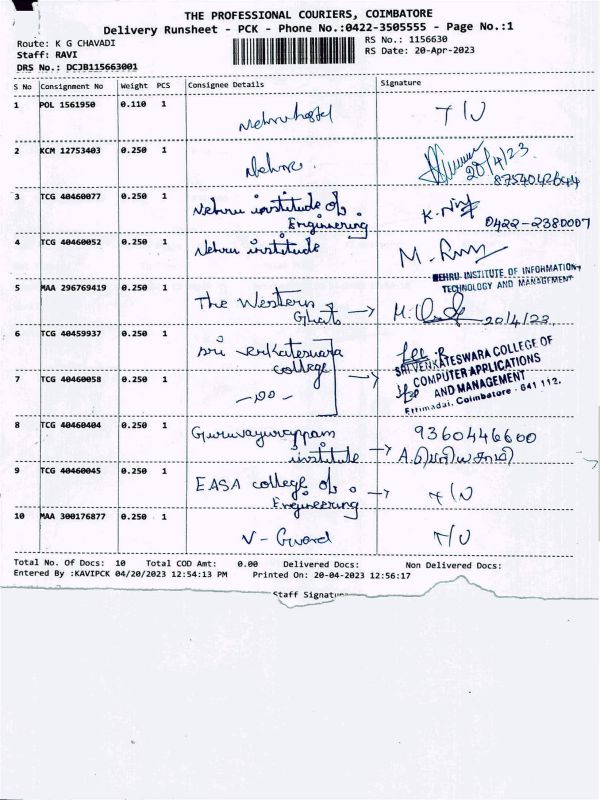 THE PROFESSIONAL COURIERS, COIMBATORE
Delivery Runsheet - PCK - Phone No.:0422-3505555 - Page No.:1
Route: K G CHAVADI
RS No.: 1156630
Staff: RAVI
RS Date: 20-Apr-2023
DRS No.: DCJB115663001
S No Consignment No Weight PCS Consignee Details Signature
1 POL 1561950 0.110 1 Nehru hostel
2 KCM 12753403 0.250 1 Nehru 20/4/23
3 TCG 40460077 0.250 1 Nehru institude of
Enginnering 0422-2380007
4 TCG 40460052 0.250 1 Nehru institude
NEHRU INSTITUTE OF INFORMATION
TECHNOLOGY AND MANAGEMENT
5 MAA 296769419 0.250 1 The Western
Ghats → 20/4/23
6 TCG 40459937 0.250 1 Sri venkateswara
college →
SRI VENKATESWARA COLLEGE OF
COMPUTER APPLICATIONS
AND MANAGEMENT
Ettimadai, Coimbatore - 641 112.
7 TCG 40460058 0.250 1 -do-
8 TCG 40460404 0.250 1 Guruvayurappam
institute → 9360446600
9 TCG 40460045 0.250 1 EASA college of
Engineering →
10 MAA 300176877 0.250 1 V-Guard
Total No. Of Docs: 10 Total COD Amt: 0.00 Delivered Docs: Non Delivered Docs:
Entered By :KAVIPCK 04/20/2023 12:54:13 PM Printed On: 20-04-2023 12:56:17
Staff Signature